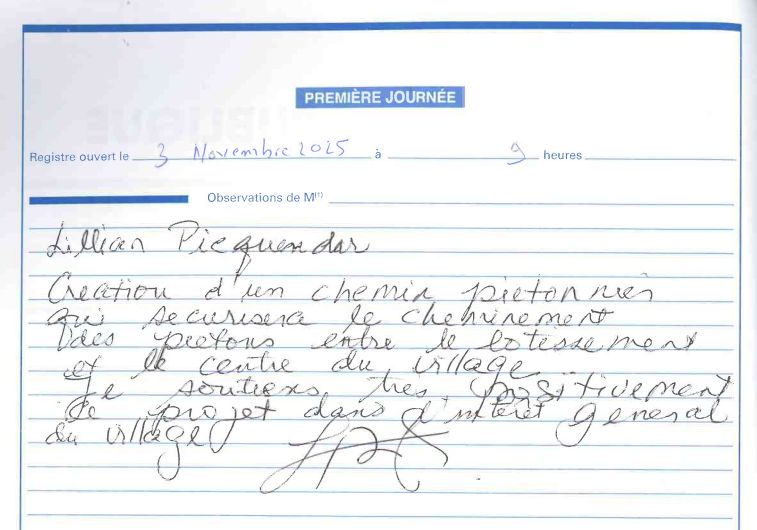 PREMIÈRE JOURNÉE
Registre ouvert le 3 Novembre 2025 à 9 heures
Observations de M(1)
Lillian Picquendar
Creation d'un chemin pietonnier
qui securisera le cheminement
des pietons entre le lotissement
et le centre du village
Je soutiens tres positivement
ce projet dans d'intéret general
du village